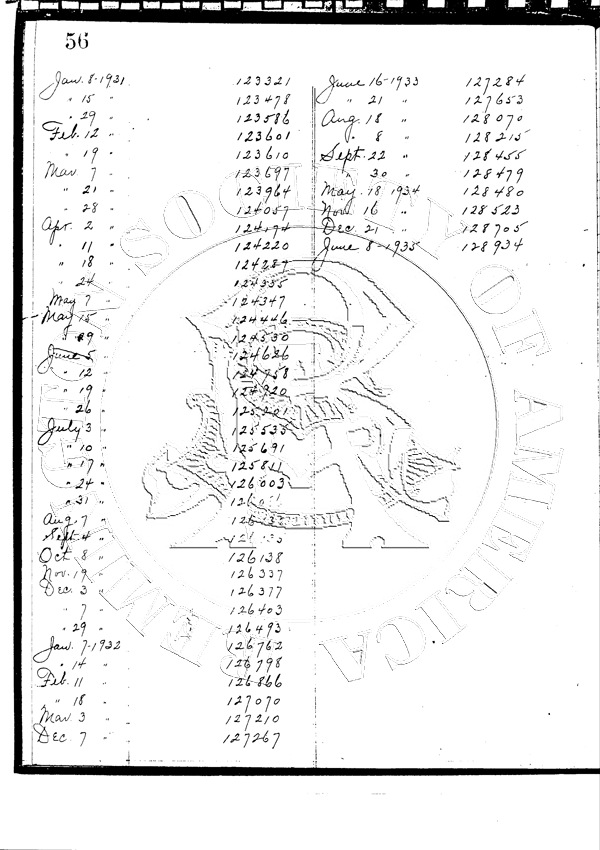 56
Jan. 8-1931 123321
" 15 " 123478
" 29 " 123586
Feb. 12 " 123601
" 19 " 123610
Mar 7 " 123697
" 21 " 123964
" 28 " 124057
Apr. 2 " 124174
" 11 " 124220
" 18 " 124287
" 24 124335
May 7 " 124347
May 15 " 124446
" 29 " 124530
June 5 " 124626
" 12 " 124758
" 19 "
" 26 " 125201
July 3 " 125535
" 10 " 125691
" 17 " 125811
" 24 " 126003
" 31 "
Aug. 7 "
Sept. 4 "
Oct. 8 " 126138
Nov. 19 " 126337
Dec. 3 " 126377
" 7 " 126403
" 29 " 126493
Jan. 7-1932 126762
" 14 " 126798
Feb. 11 " 126866
" 18 " 127070
Mar. 3 " 127210
Dec. 7 " 127267
June 16-1933 127284
" 21 " 127653
Aug. 18 " 128070
" 8 " 128215
Sept. 22 " 128455
" 30 " 128479
May 18 1934 128480
Nov. 16 " 128523
Dec. 21 " 128705
June 8-1935 128934
SOCIETY OF AMERICA